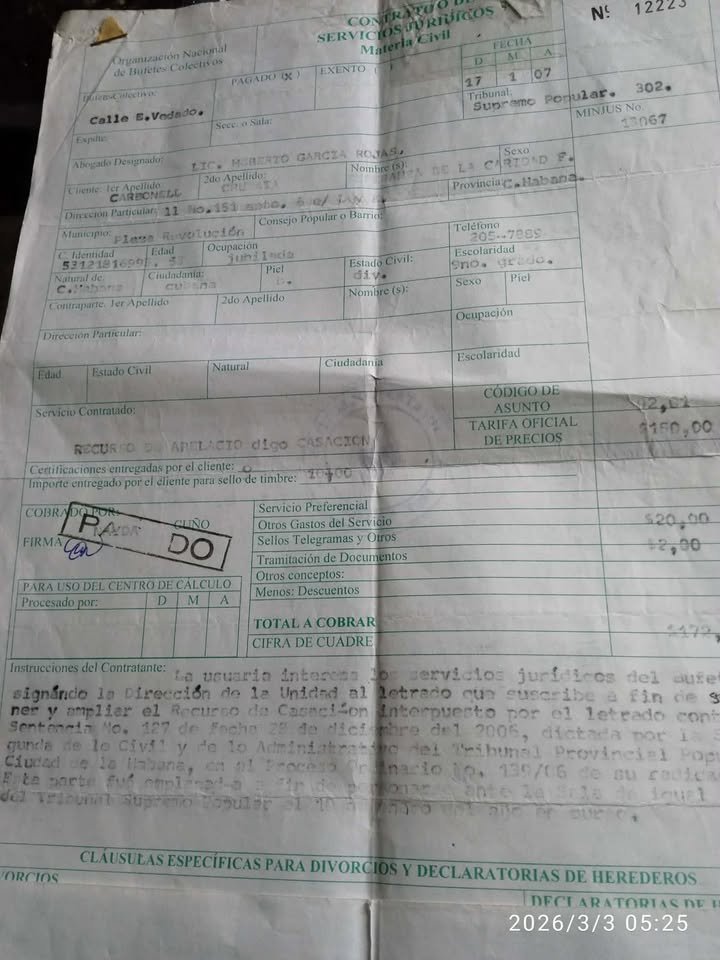 CONTRATO DE
SERVICIOS JURÍDICOS
Materia Civil
Nº 12223
Organización Nacional
de Bufetes Colectivos
PAGADO (X) EXENTO ( )
FECHA
D M A
17 1 07
Bufete Colectivo:
Calle E.Vedado.
Tribunal:
Supremo Popular. 302.
Expdte:
Secc. o Sala:
MINJUS No.
13067
Abogado Designado: LIC. GARCIA ROJAS.
Cliente: 1er Apellido 2do Apellido: Nombre(s): Sexo
CARBONELL DE LA CARIDAD F.
Dirección Particular: 11 No.151 apto. 6 e/
Provincia: C.Habana.
Municipio: Plaza Revolución Consejo Popular o Barrio:
Teléfono
205--7889
C. Identidad Edad Ocupación
53 jubilada
Estado Civil: Escolaridad
div. 9no. grado.
Natural de: Ciudadanía: Piel
C.Habana cubana
Contraparte. 1er Apellido 2do Apellido Nombre (s): Sexo Piel
Dirección Particular: Ocupación
Edad Estado Civil Natural Ciudadanía Escolaridad
Servicio Contratado:
CÓDIGO DE
ASUNTO
TARIFA OFICIAL
DE PRECIOS $150,00
RECURSO DE APELACIO digo CASACION
Certificaciones entregadas por el cliente: 0
Importe entregado por el cliente para sello de timbre: 10,00
COBRADO POR: CUÑO
PAGADO
FIRMA
Servicio Preferencial
Otros Gastos del Servicio $20,00
Sellos Telegramas y Otros $2,00
Tramitación de Documentos
Otros conceptos:
Menos: Descuentos
PARA USO DEL CENTRO DE CÁLCULO
Procesado por: D M A
TOTAL A COBRAR $172,
CIFRA DE CUADRE
Instrucciones del Contratante: La usuaria interesa los servicios jurídicos del bufet
signándo la Dirección de la Unidad al letrado que suscribe a fin de
ner y ampliar el Recurso de Casación interpuesto por el letrado cont
Sentencia No. 127 de fecha 28 de diciembre del 2006, dictada por la S
gunda de lo Civil y de lo Administrativo del Tribunal Provincial Popu
Ciudad de la Habana, en el Proceso Ordinario No. 139/06 de su radica
Esta parte fué emplazada a fin de personarse ante la Sala de igual
del Tribunal Supremo Popular el 10 de enero del año en curso.
CLÁUSULAS ESPECÍFICAS PARA DIVORCIOS Y DECLARATORIAS DE HEREDEROS
VORCIOS
DECLARATORIAS DE H
2026/3/3 05:25